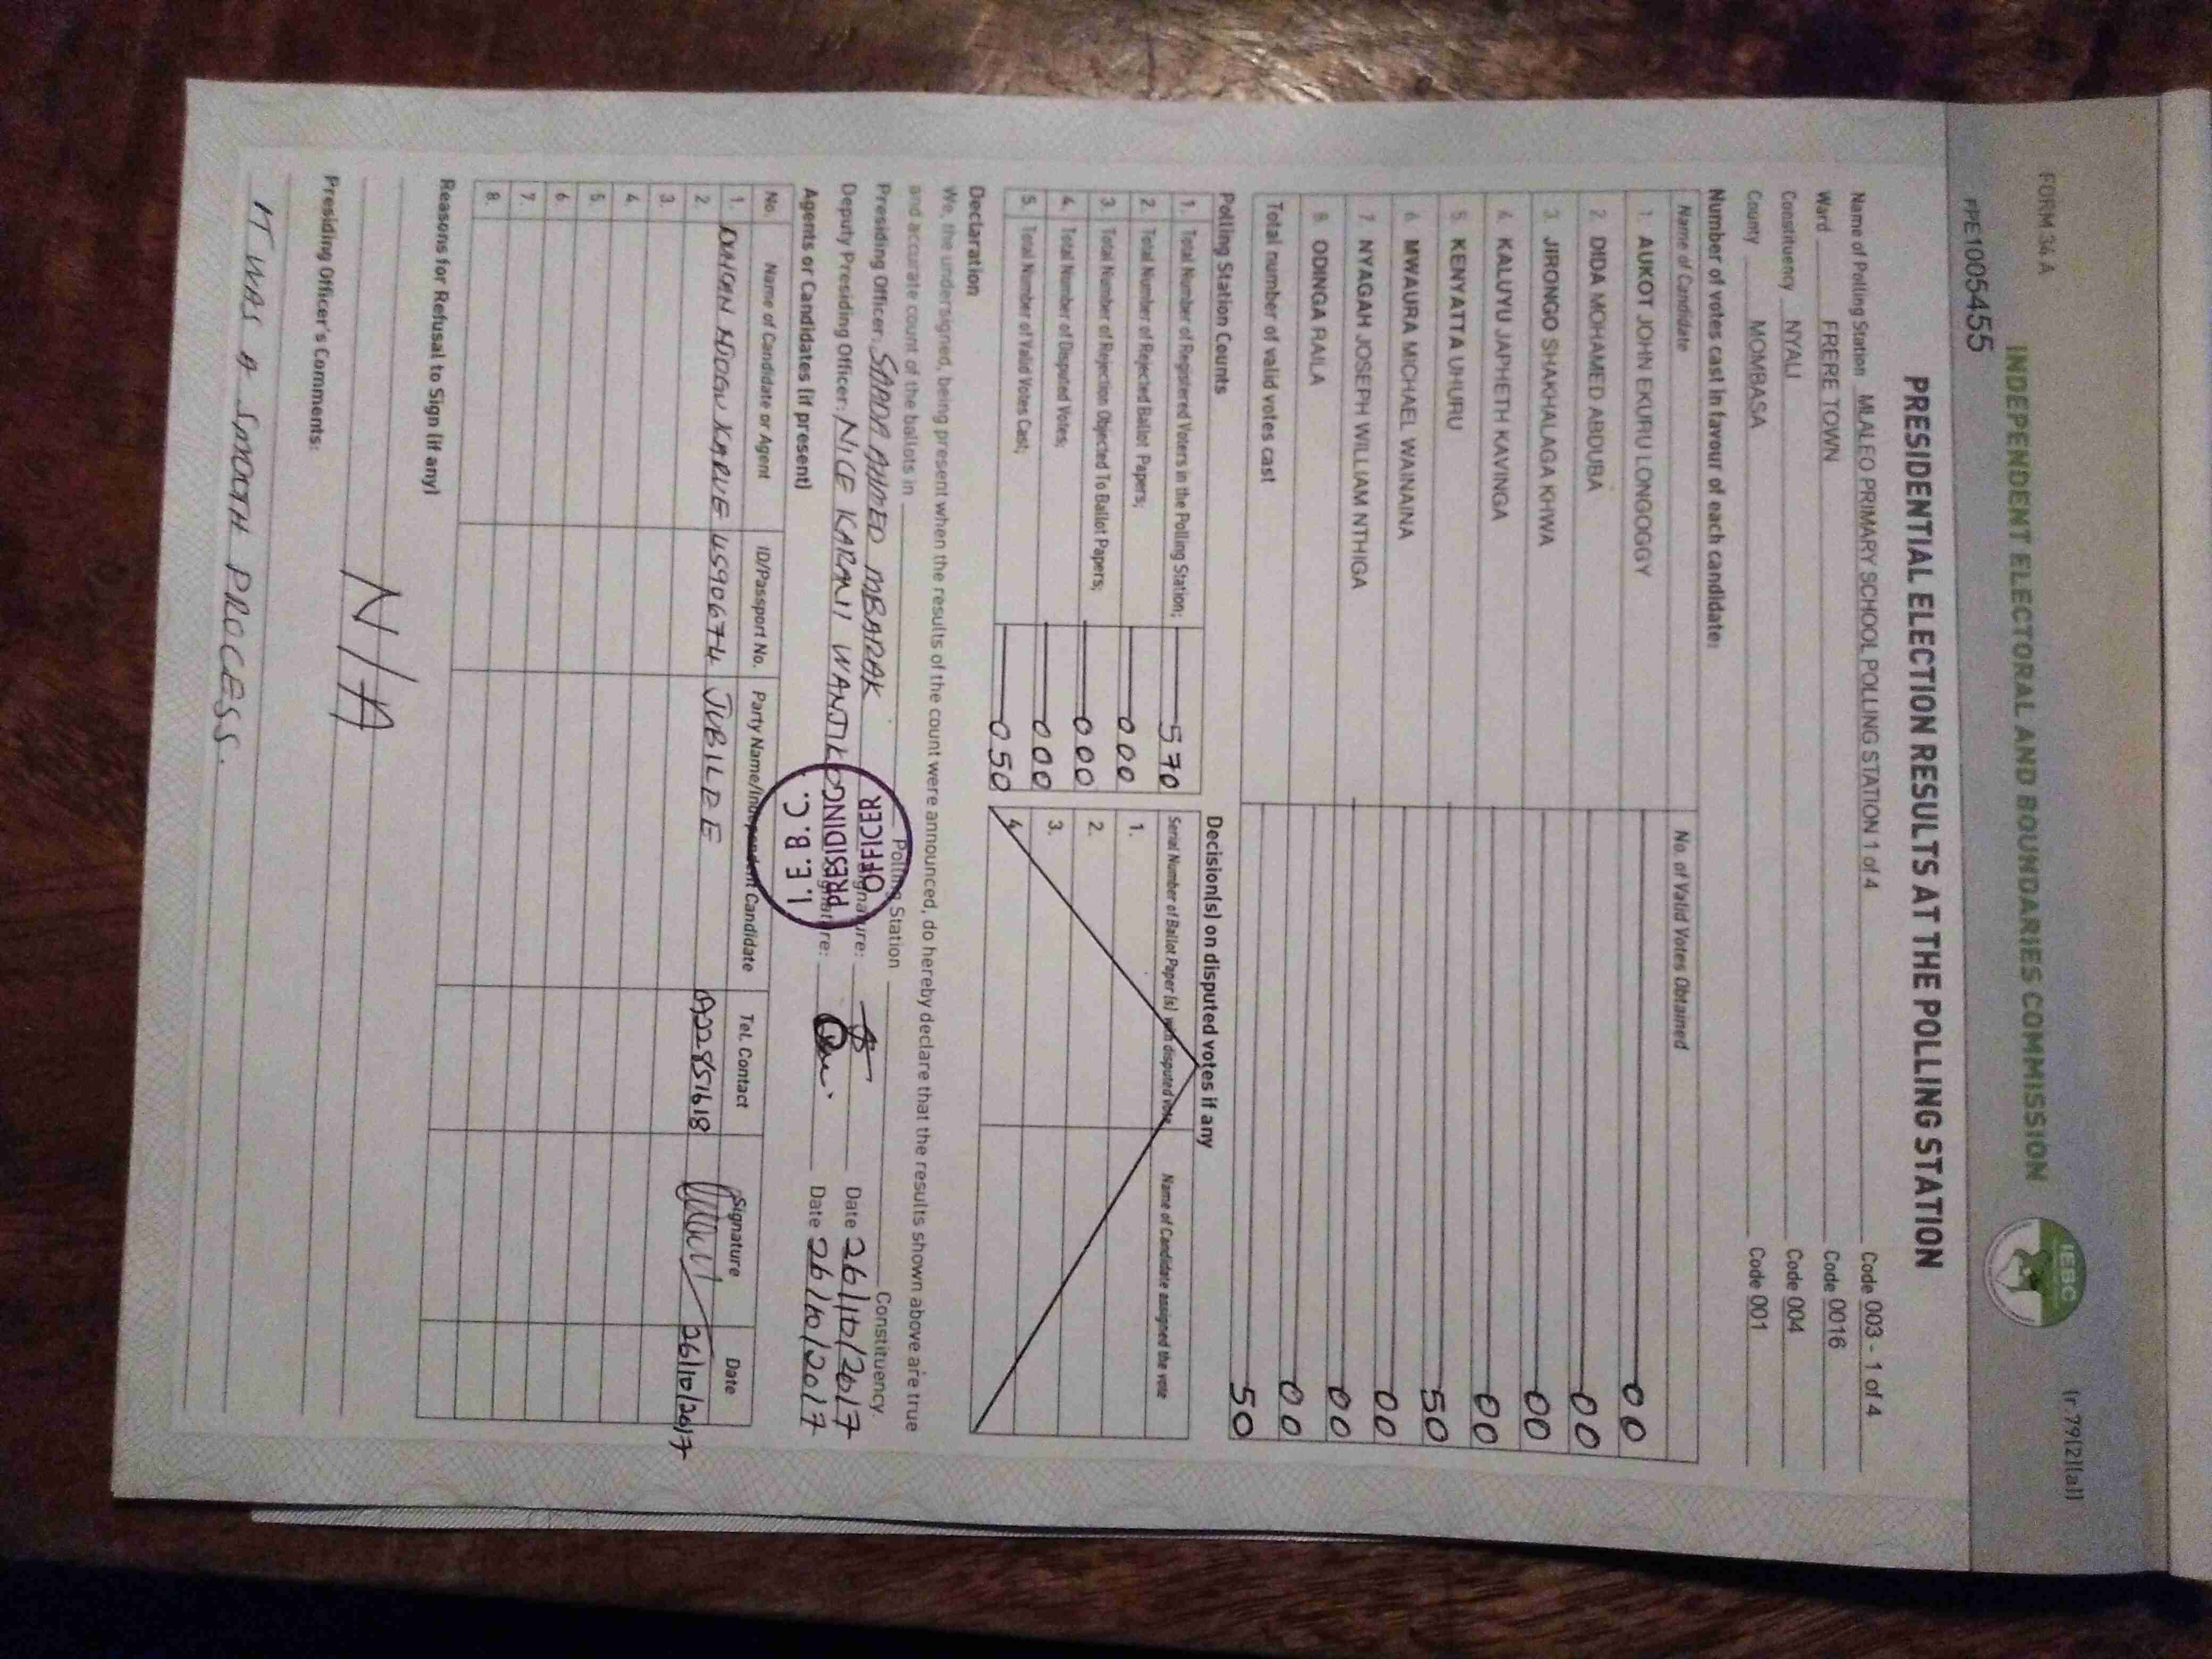 FORM 34 A
(r 79(2)(a))
INDEPENDENT ELECTORAL AND BOUNDARIES COMMISSION
IEBC
PPE1005455
PRESIDENTIAL ELECTION RESULTS AT THE POLLING STATION
Name of Polling Station MLALEO PRIMARY SCHOOL POLLING STATION 1 of 4 Code 003 - 1 of 4
Ward FRERE TOWN Code 0016
Constituency NYALI Code 004
County MOMBASA Code 001
Number of votes cast in favour of each candidate:
Name of Candidate No. of Valid Votes Obtained
1. AUKOT JOHN EKURU LONGOGGY 00
2. DIDA MOHAMED ABDUBA 00
3. JIRONGO SHAKHALAGA KHWA 00
4. KALUYU JAPHETH KAVINGA 00
5. KENYATTA UHURU 50
6. MWAURA MICHAEL WAINAINA 00
7. NYAGAH JOSEPH WILLIAM NTHIGA 00
8. ODINGA RAILA 00
Total number of valid votes cast 50
Polling Station Counts
1. Total Number of Registered Voters in the Polling Station; 570
2. Total Number of Rejected Ballot Papers; 000
3. Total Number of Rejection Objected To Ballot Papers; 000
4. Total Number of Disputed Votes; 000
5. Total Number of Valid Votes Cast; 050
Decision(s) on disputed votes if any
Serial Number of Ballot Paper (s) with disputed vote Name of Candidate assigned the vote
1.
2.
3.
4.
Declaration
We, the undersigned, being present when the results of the count were announced, do hereby declare that the results shown above are true
and accurate count of the ballots in Polling Station Constituency.
Presiding Officer: SAADA AHMED MBARAK Signature: Date 26/10/2017
Deputy Presiding Officer: NICE KARANI WANJIKO Signature: Date 26/10/2017
OFFICER
PRESIDING
I. E. B. C.
Agents or Candidates (if present)
No. Name of Candidate or Agent ID/Passport No. Party Name/Independent Candidate Tel. Contact Signature Date
1. KARUE JUBILEE 26/10/2017
2.
3.
4.
5.
6.
7.
8.
Reasons for Refusal to Sign (if any)
N/A
Presiding Officer's Comments:
IT WAS A SMOOTH PROCESS.